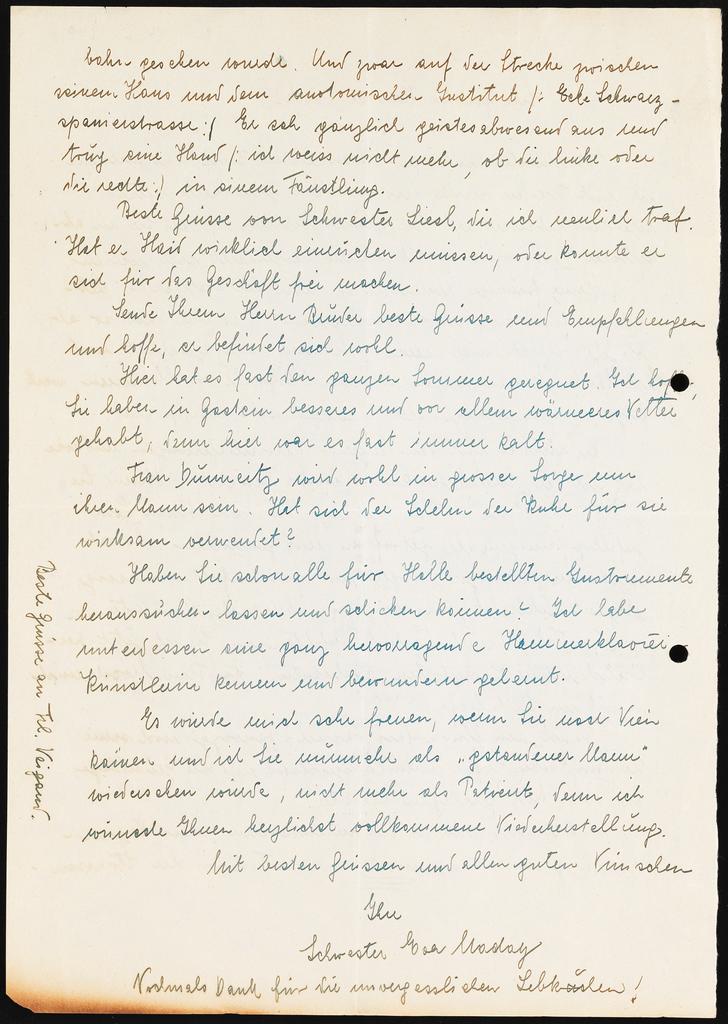 bahn gesehen wurde. Und zwar auf der Strecke zwischen
seinem Haus und dem anatomischen Institut /: Ecke Schwarz-
spanierstrasse :/ Er sah gänzlich geistesabwesend aus und
trug eine Hand /: ich weiss nicht mehr, ob die linke oder
die rechte :/ in einem Fäustling.
Beste Grüsse von Schwester Liesl, die ich neulich traf.
Hat er Haid wirklich einrücken müssen, oder konnte er
sich für das Geschäft frei machen.
Sende Ihrem Herrn Bruder beste Grüsse und Empfehlungen
und hoffe, er befindet sich wohl.
Hier hat es fast den ganzen Sommer geregnet. Ich hoffe,
Sie haben in Gastein besseres und vor allem wärmeres Wetter
gehabt, denn hier war es fast immer kalt.
Frau wird wohl in grosser Sorge um
ihren Mann sein. Hat sich der Schelm der Kuhr für sie
wirksam verwendet?
Haben Sie schon alle für Halle bestellten Instrumente
heraussuchen lassen und schicken können? Ich habe
unterdessen eine ganz hervorragende Hammerklavier-
künstlerin kennen und bewundern gelernt.
Es würde mich sehr freuen, wenn Sie nach Wien
kämen und ich Sie nunmehr als „gstandener Mann"
wiedersehen würde, nicht mehr als Patient, denn ich
wünsche Ihnen herzlichst vollkommene Wiederherstellung.
Mit besten Grüssen und allen guten Wünschen
Ihre
Schwester Eva Maday
Nochmals Dank für die unvergesslichen Lebkuchen!
Beste Grüsse an Frl. Weigand.